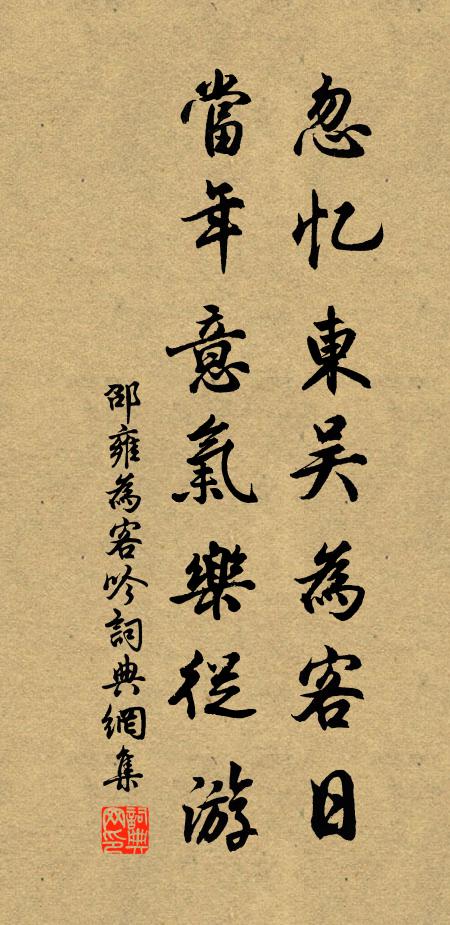 忽忆東吴為客日
當年意氣樂從游
邵雍為客吟詞典網集
詞典网印